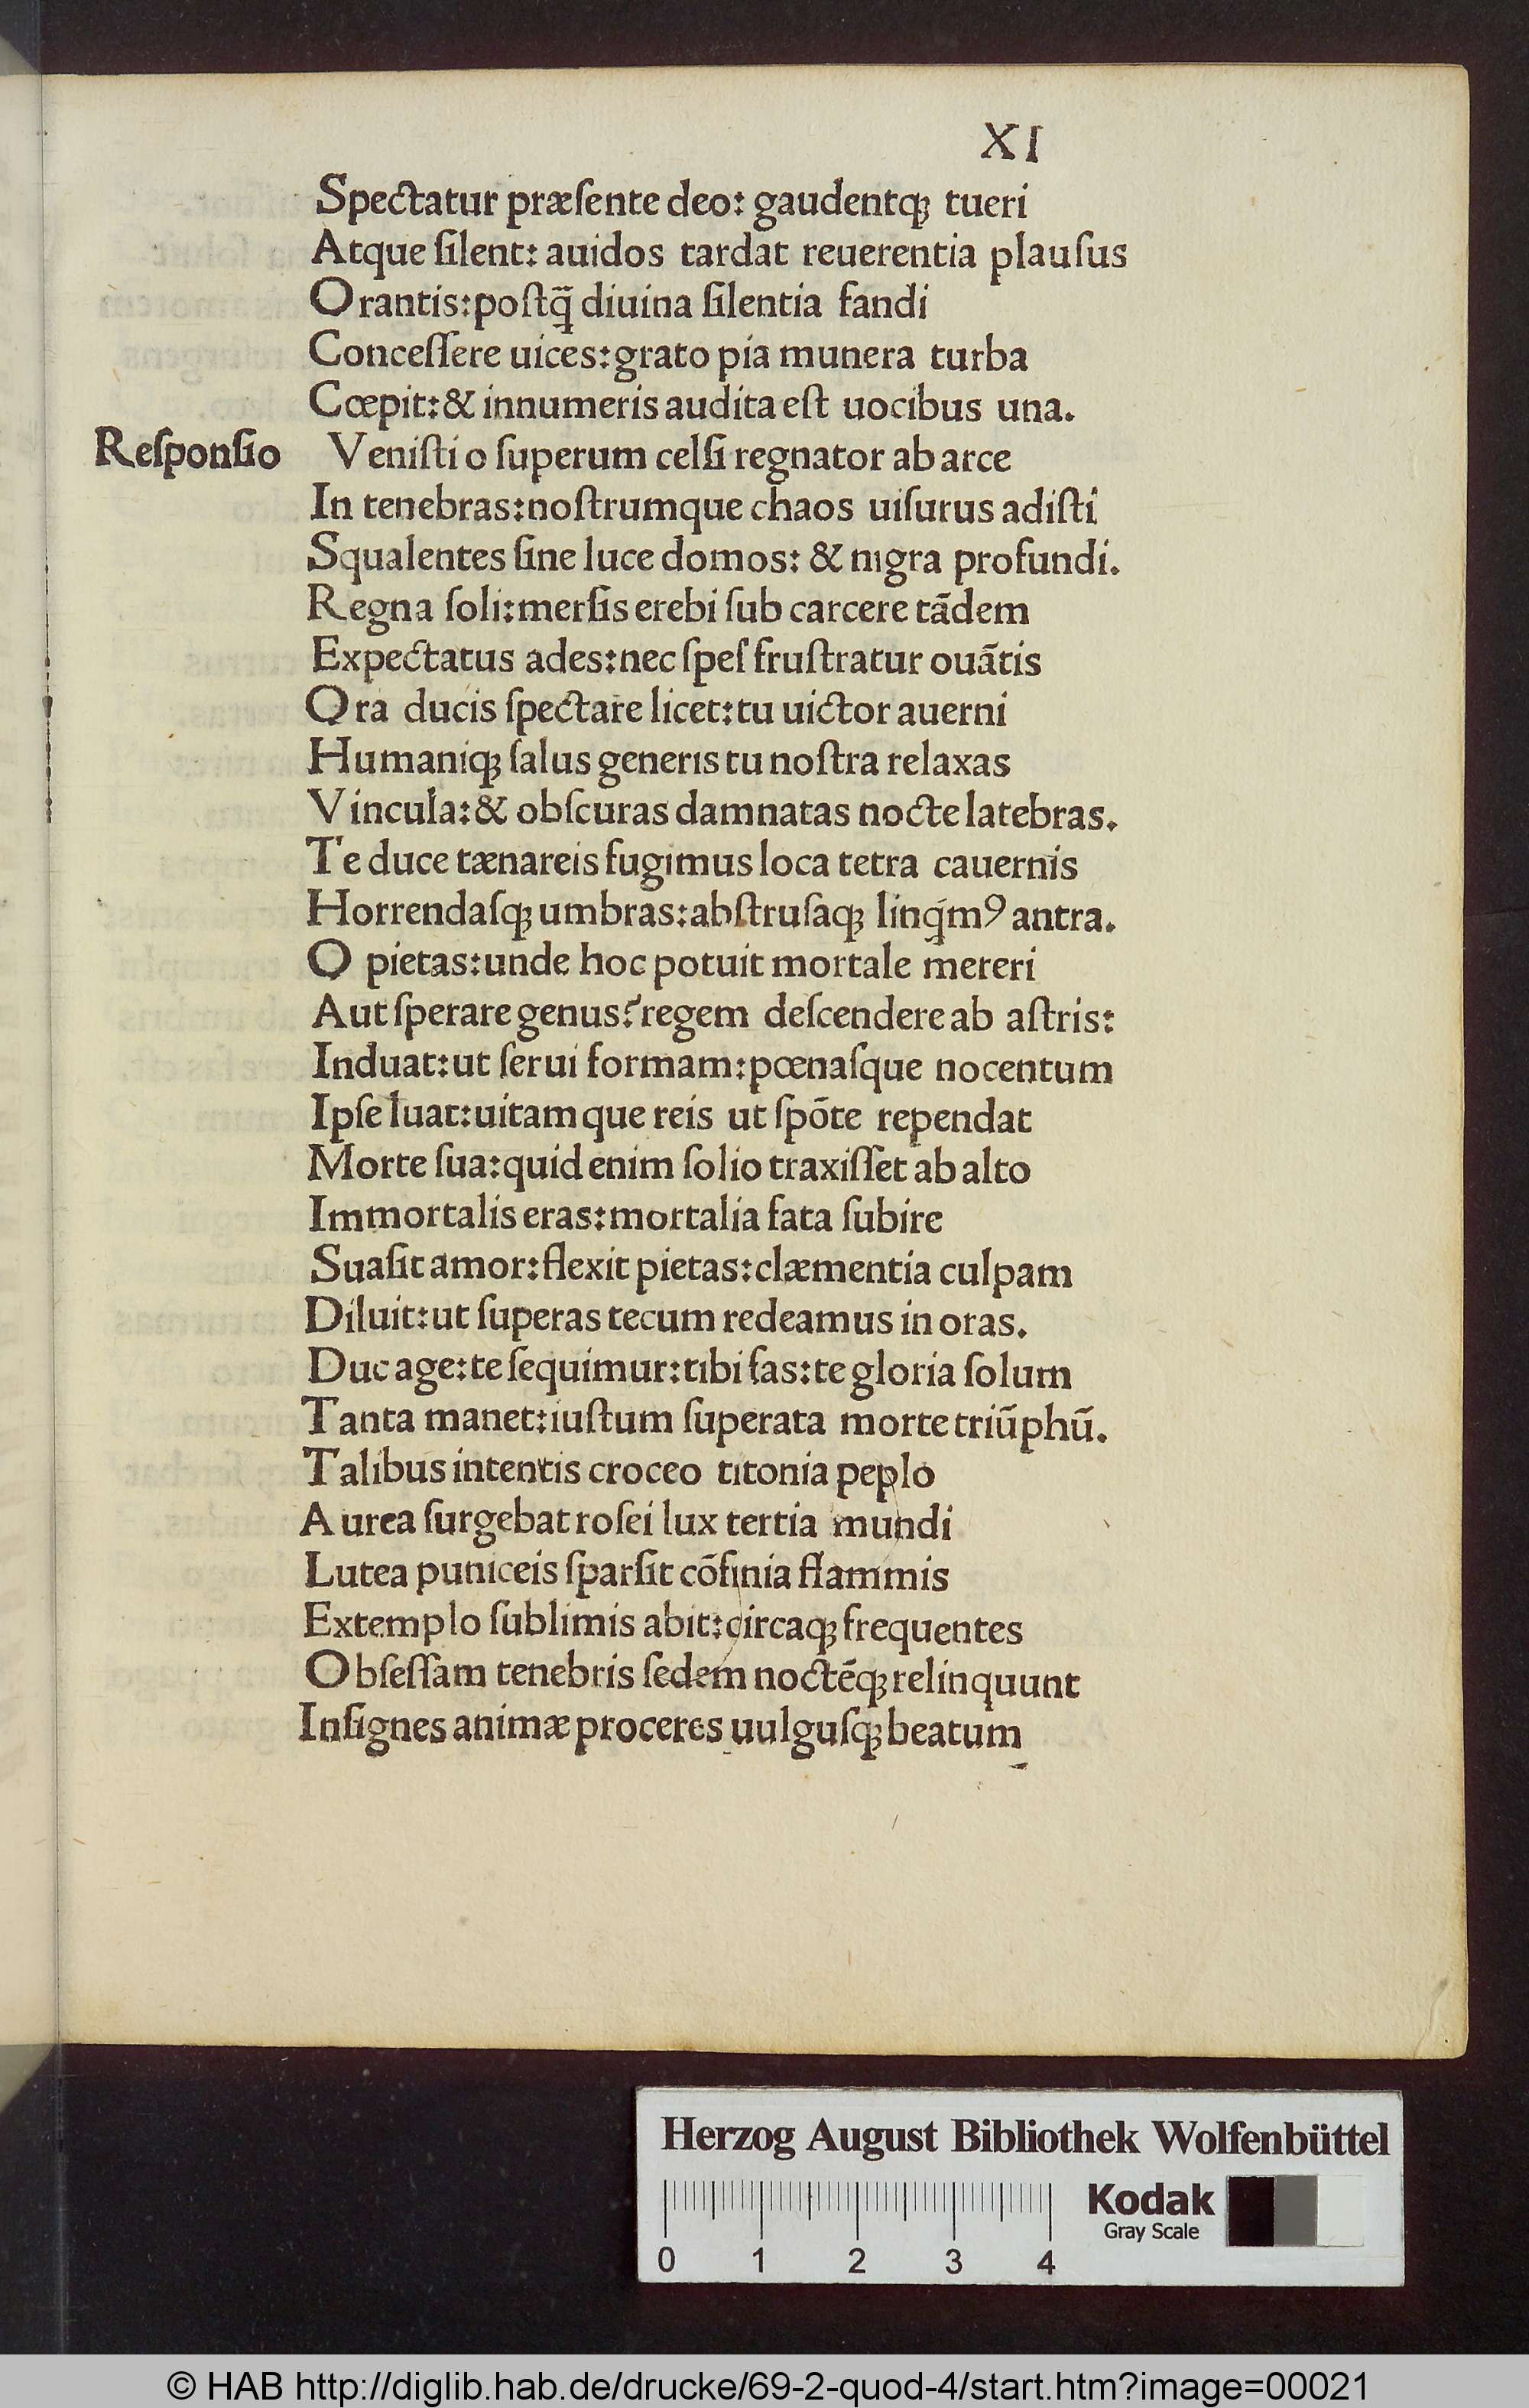 XI
Spectatur præſente deo: gaudentqꝫ tueri
Atque ſilent: auidos tardat reuerentia plauſus
Orantis:poſtq̃ diuina ſilentia fandi
Conceſſere uices:grato pia munera turba
Cœpit:& innumeris audita eſt uocibus una.
Reſponſio Veniſti o ſuperum celſi regnator ab arce
In tenebras:noſtrumque chaos uiſurus adiſti
Squalentes ſine luce domos: & nigra profundi.
Regna ſoli:merſis erebi ſub carcere tãdem
Expectatus ades:nec ſpeſ fruſtratur ouãtis
Ora ducis ſpectare licet:tu uictor auerni
Humaniqꝫ ſalus generis tu noſtra relaxas
Vincula:& obſcuras damnatas nocte latebras.
Te duce tænareis fugimus loca tetra cauernis
Horrendaſqꝫ umbras:abſtruſaqꝫ linq́mꝰ antra.
O pietas:unde hoc potuit mortale mereri
Aut ſperare genus?regem deſcendere ab aſtris:
Induat:ut ſerui formam:pœnaſque nocentum
Ipſe luat:uitamque reis ut ſpõte rependat
Morte ſua:quid enim ſolio traxiſſet ab alto
Immortalis eras:mortalia fata ſubire
Suaſit amor:flexit pietas:clæmentia culpam
Diluit:ut ſuperas tecum redeamus in oras.
Duc age:te ſequimur:tibi fas:te gloria ſolum
Tanta manet:iuſtum ſuperata morte triũphũ.
Talibus intentis croceo titonia peplo
Aurea ſurgebat roſei lux tertia mundi
Lutea puniceis ſparſit cõfinia flammis
Extemplo ſublimis abit:circaqꝫ frequentes
Obſeſſam tenebris ſedem noctẽqꝫ relinquunt
Inſignes animæ proceres uulguſqꝫ beatum
Herzog August Bibliothek Wolfenbüttel
Kodak
Gray Scale
0 1 2 3 4
© HAB http://diglib.hab.de/drucke/69-2-quod-4/start.htm?image=00021